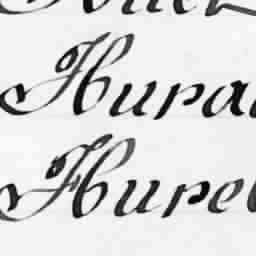 Hura
Hurel